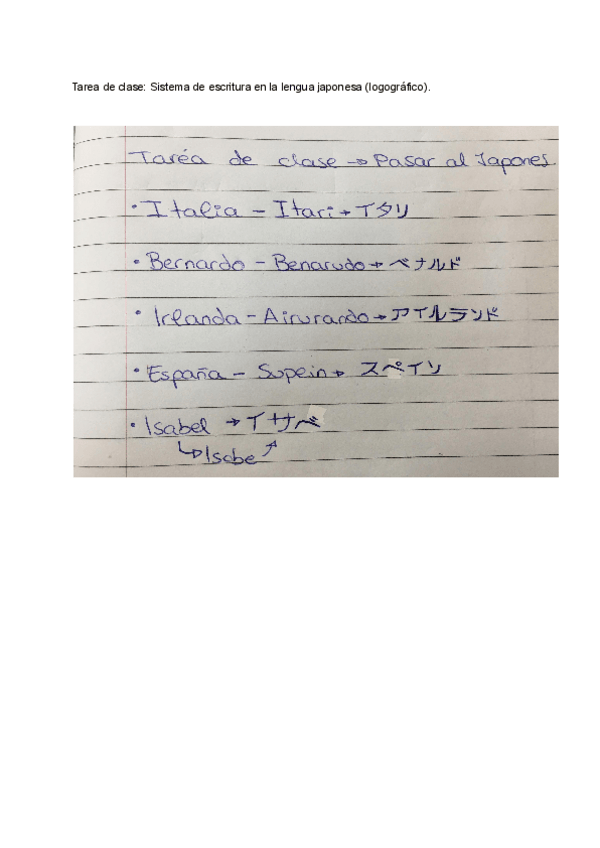 Tarea de clase: Sistema de escritura en la lengua japonesa (logográfico).
Taréa de clase → Pasar al Japones
• Italia - Itari → イタリ
• Bernardo - Benarudo → ベナルド
• Irlanda - Airurando → アイルランド
• España - Supein → スペイン
• Isabel → イサベ
↳ Isabe ↗